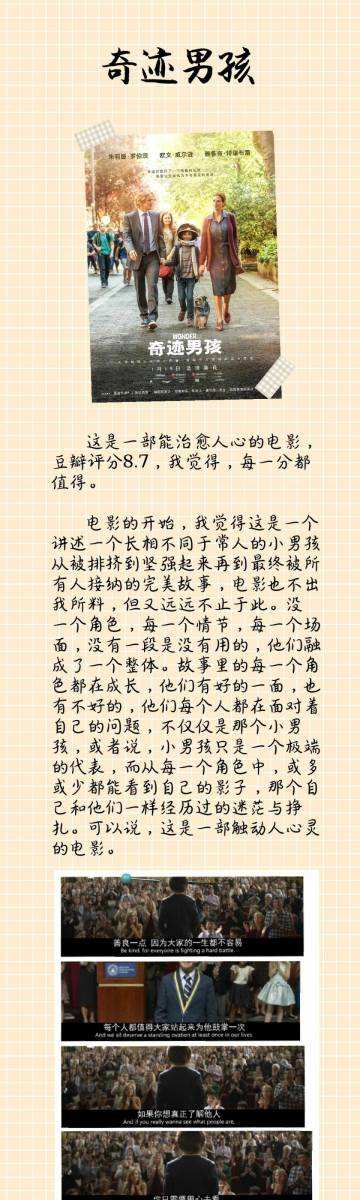 奇迹男孩
朱莉娅·罗伯茨 欧文·威尔逊 雅各布·特瑞布雷
WONDER
奇迹男孩
1月19日
这是一部能治愈人心的电影，
豆瓣评分8.7，我觉得，每一分都
值得。
电影的开始，我觉得这是一个
讲述一个长相不同于常人的小男孩
从被排挤到坚强起来再到最终被所
有人接纳的完美故事，电影也不出
我所料，但又远远不止于此。没
一个角色，每一个情节，每一个场
面，没有一段是没有用的，他们融
成了一个整体。故事里的每一个角
色都在成长，他们有好的一面，也
有不好的，他们每个人都在面对着
自己的问题，不仅仅是那个小男
孩，或者说，小男孩只是一个极端
的代表，而从每一个角色中，或多
或少都能看到自己的影子，那个自
己和他们一样经历过的迷茫与挣
扎。可以说，这是一部触动人心灵
的电影。
善良一点 因为大家的一生都不容易
Be kind, for everyone is fighting a hard battle.
每个人都值得大家站起来为他鼓掌一次
And we all deserve a standing ovation at least once in our lives.
如果你想真正了解他人
And if you really wanna see what people are,
你只需要用心去看